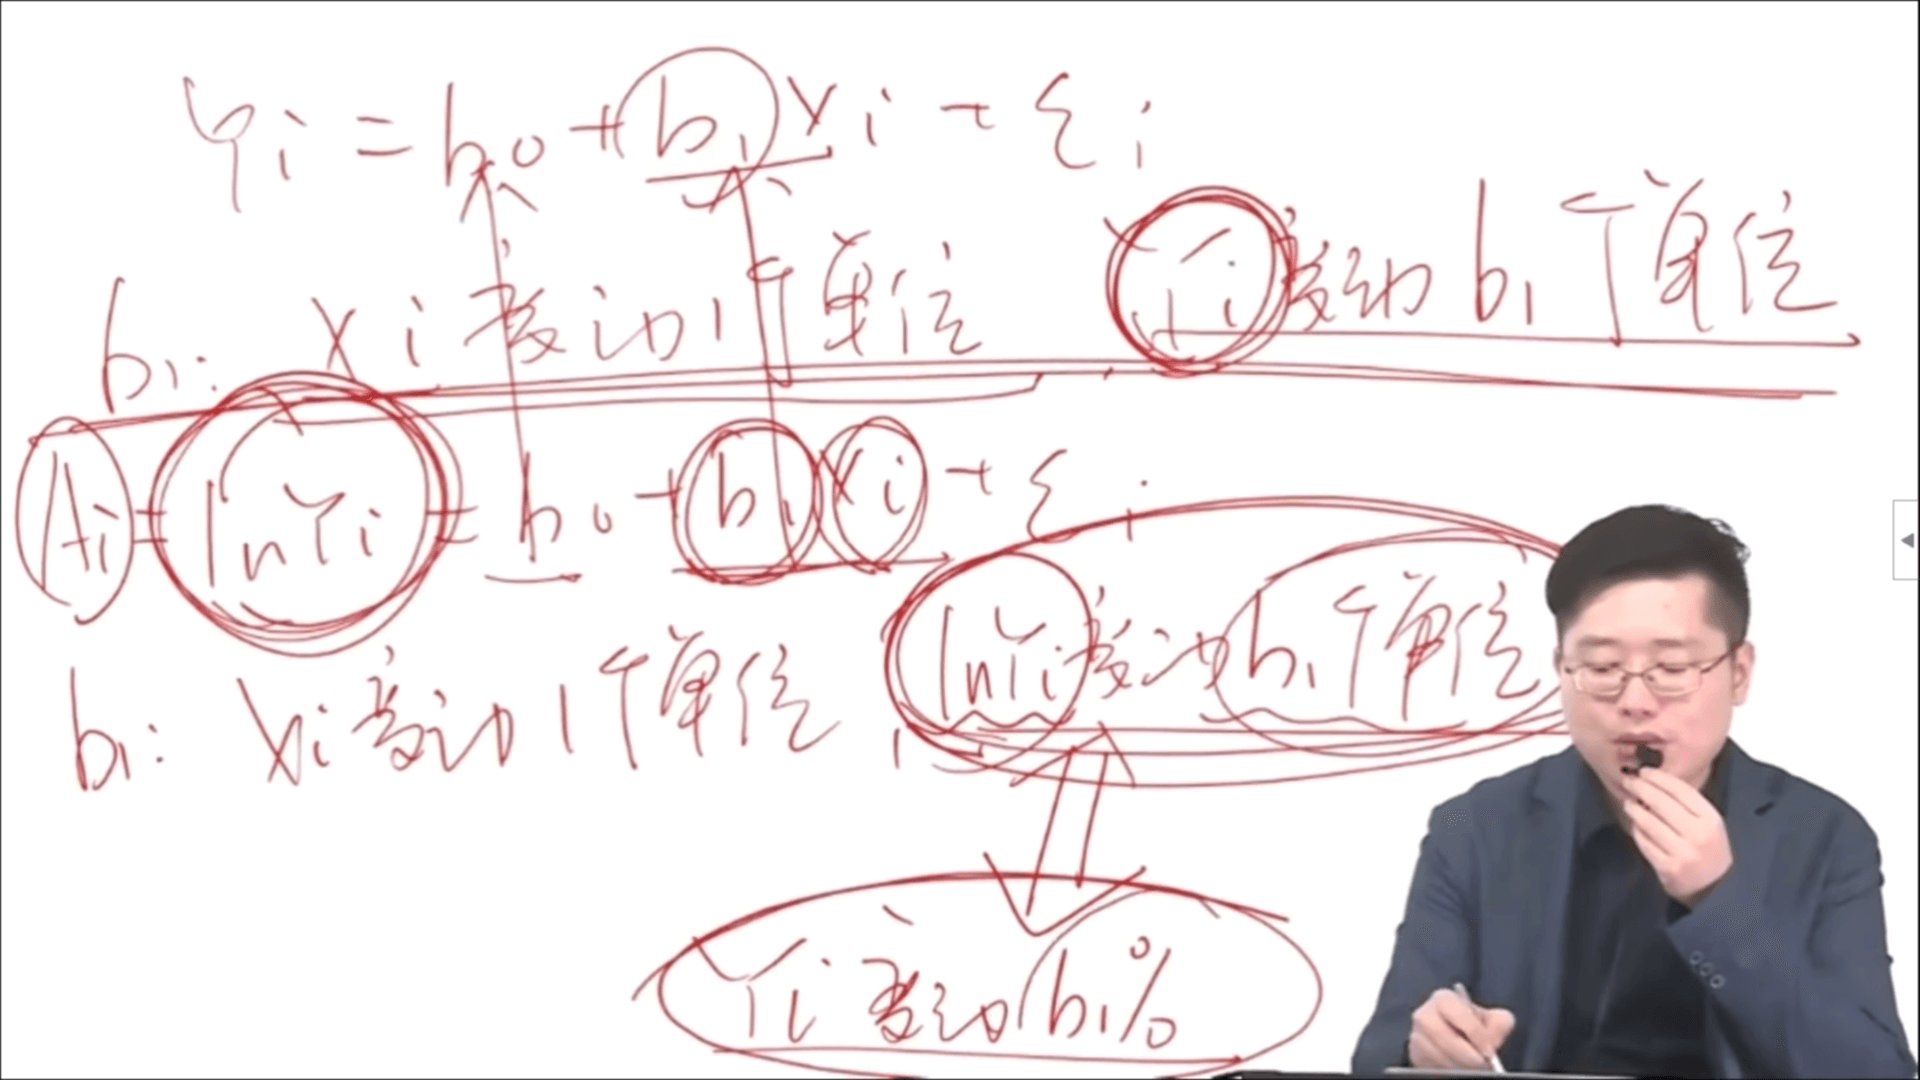 Yi = b0 + b1 Xi + εi
b1: Xi 变动1个单位 Yi 变动 b1 个单位
Ai = lnYi = b0 + b1 Xi + εi
b1: Xi 变动1个单位, lnYi 变动 b1 个单位
Yi 变动 b1%